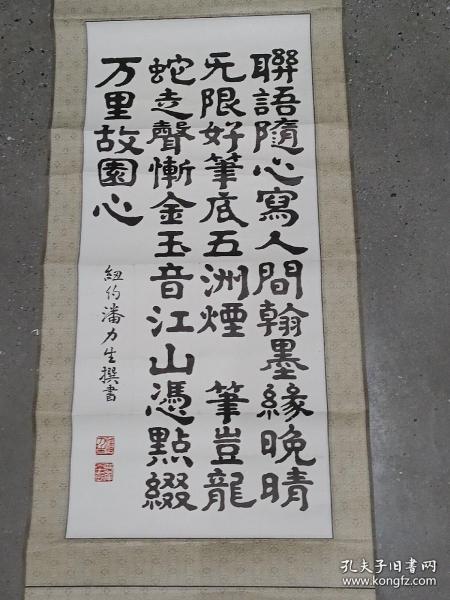 聯語隨心寫人間翰墨緣晚晴
无限好筆底五洲煙 筆豈龍
蛇走聲慚金玉音江山憑點綴
万里故園心
紐約潘力生撰書
孔夫子旧书网
www.kongfz.com